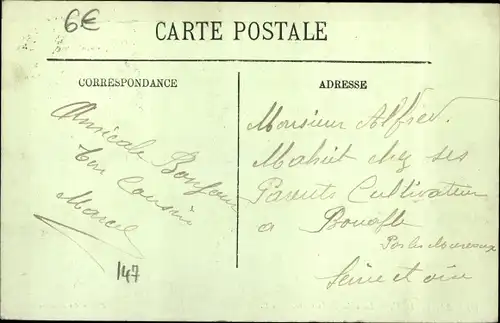 6€
CARTE POSTALE
CORRESPONDANCE
ADRESSE
Amicale Bonjour
ton Cousin
Marcel
147
Monsieur Alfred
Mahiet chez ses
Parents Cultivateur
a Bouafle
Par les Mureaux
Seine et oise